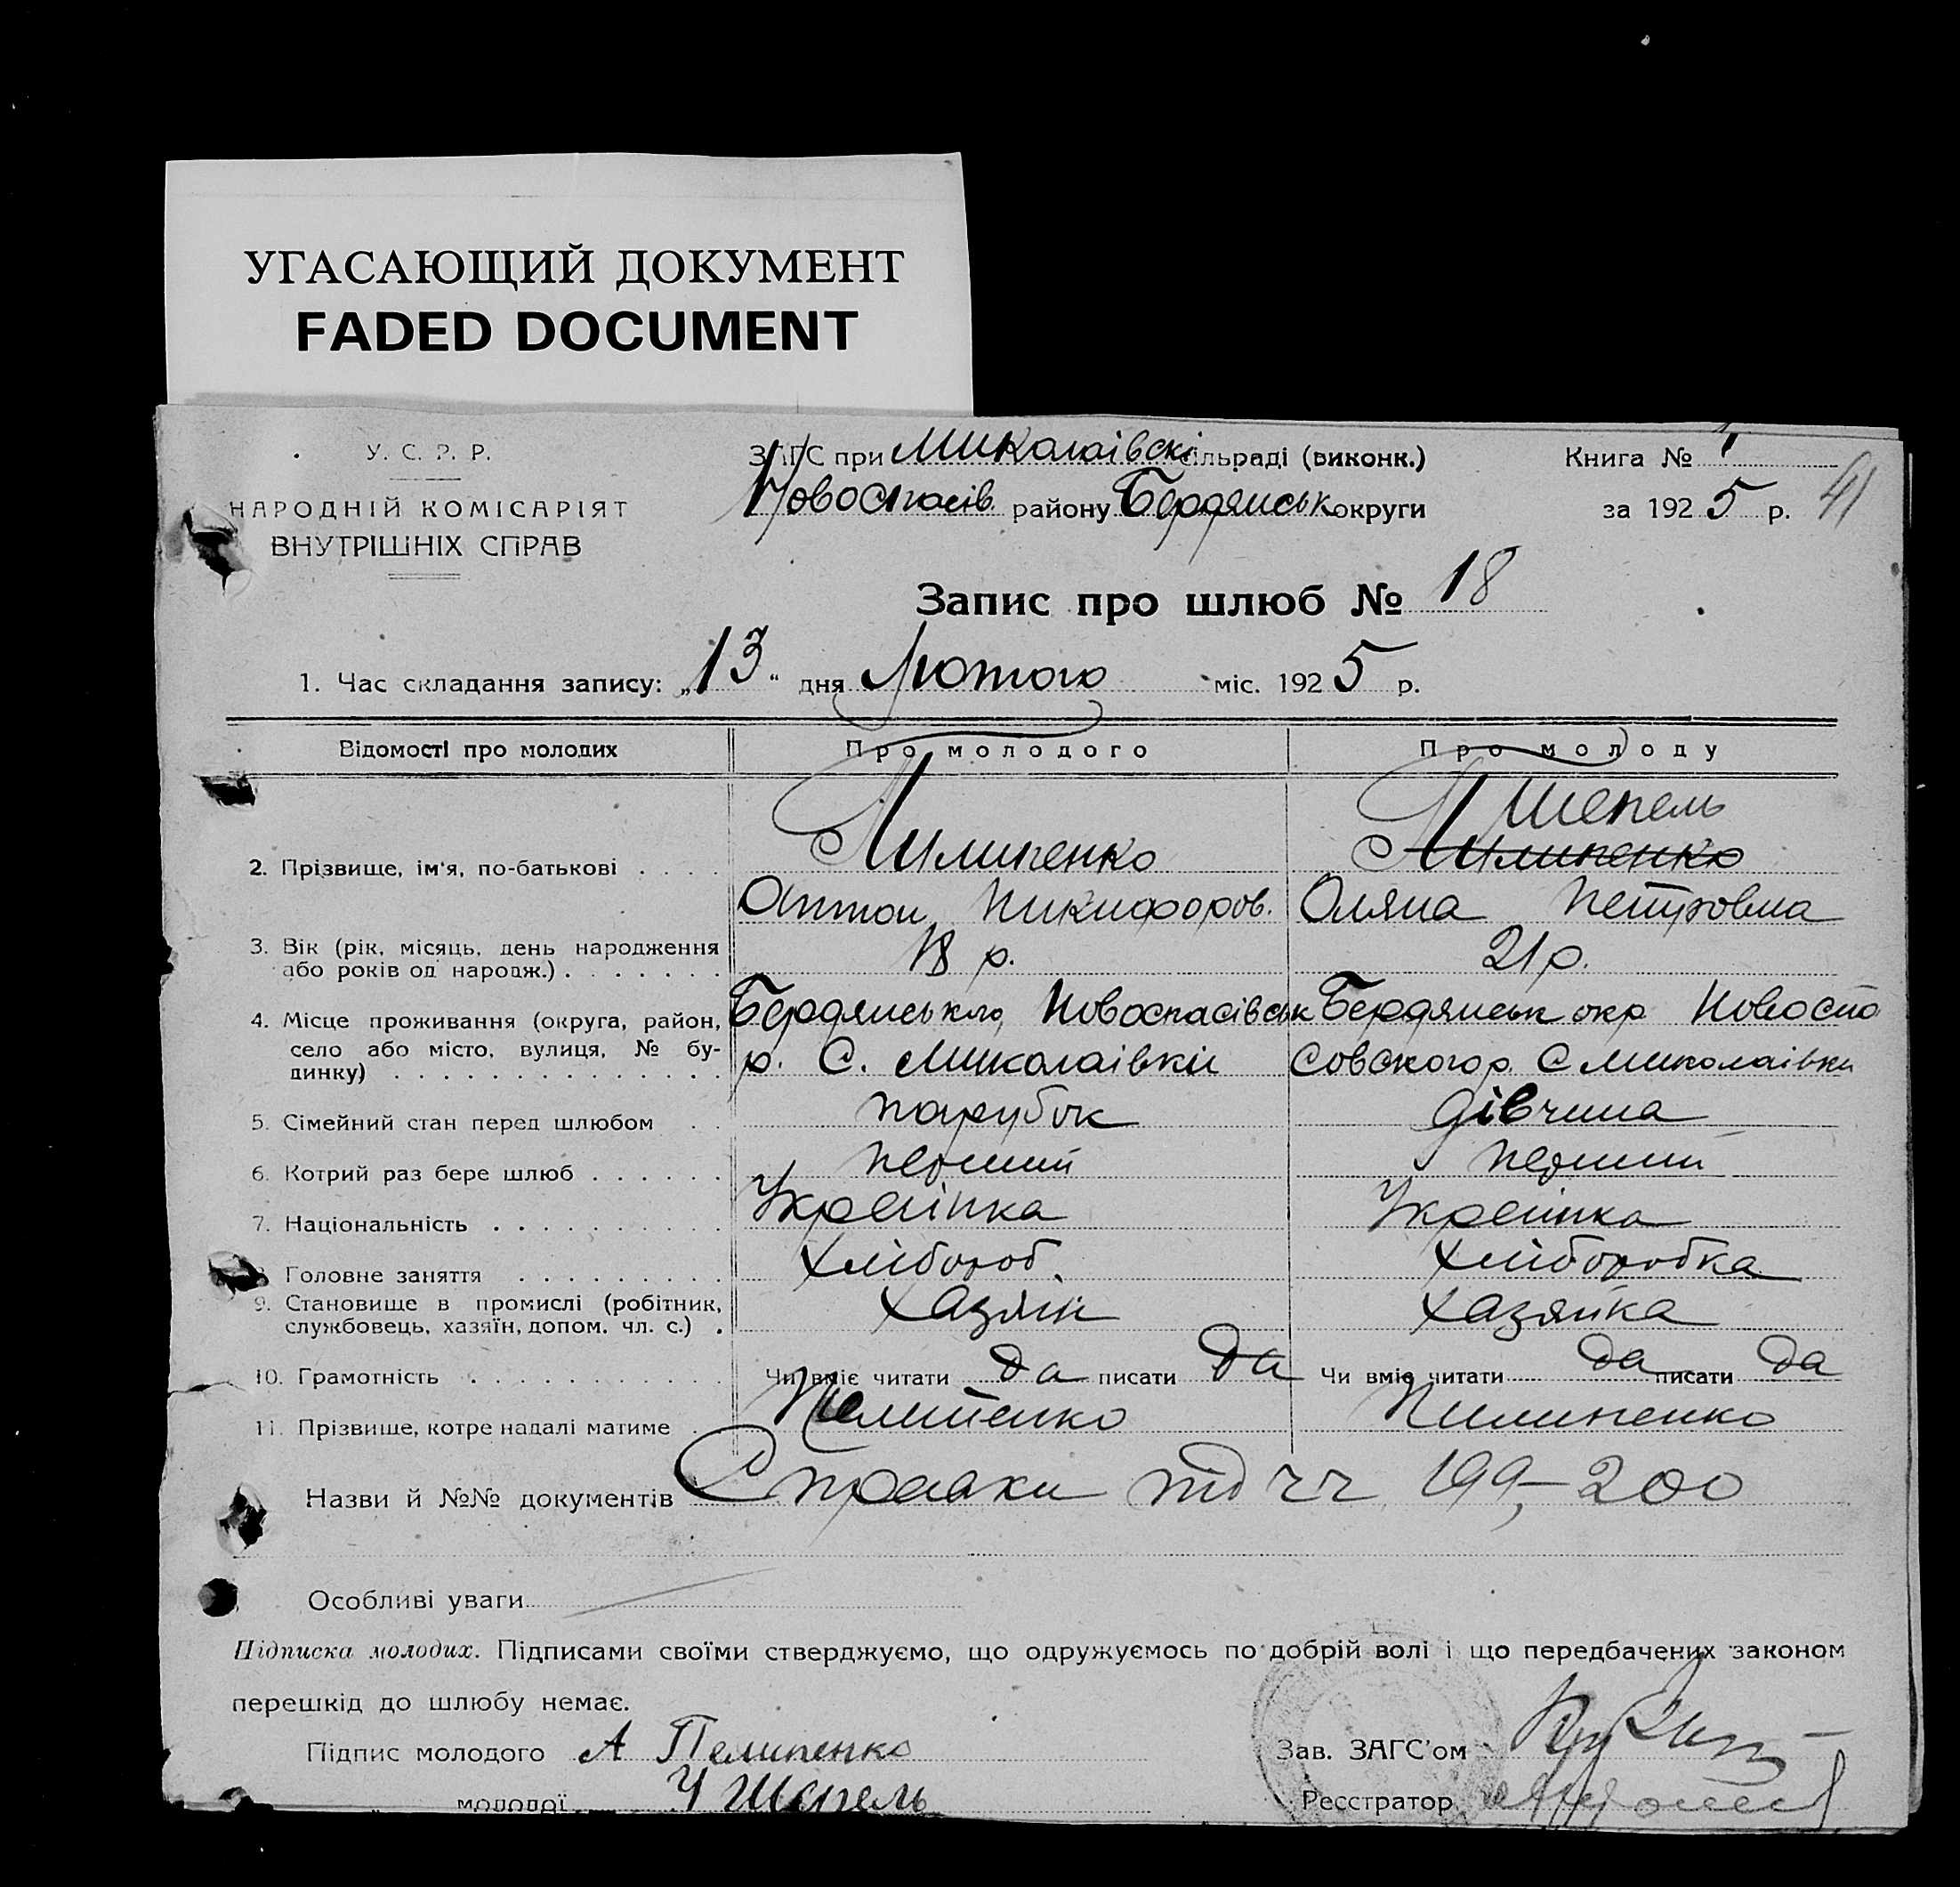 УГАСАЮЩИЙ ДОКУМЕНТ
FADED DOCUMENT
У. С. Р. Р.
НАРОДНІЙ КОМІСАРІЯТ
ВНУТРІШНІХ СПРАВ
ЗАГС при Миколаівскі сільраді (виконк.)
Новоспасів району Бердянськ округи
Книга №
за 1925 р.
41
Запис про шлюб № 18
1. Час складання запису: „13“ дня Лютого міс. 1925 р.
Відомості про молодих Про молодого Про молоду
Шепель
2. Прізвище, ім'я, по-батькові Пилипенко Пилипенко
Антон Никифоров. Оляна Петровна
3. Вік (рік, місяць, день народження або років од народж.) 18 р. 21 р.
4. Місце проживання (округа, район, село або місто, вулиця, № будинку)
Бердянського, Новоспасівськ Бердянськ окр Новоспа
р. С. Миколаівки совского р. С Миколаівки
5. Сімейний стан перед шлюбом парубок дівчина
6. Котрий раз бере шлюб перший перший
7. Національність Украінка Украінка
8. Головне заняття Хлібороб. Хліборобка
9. Становище в промислі (робітник, службовець, хазяїн, допом. чл. с.) Хазяін Хазяйка
10. Грамотність Чи вміє читати да писати да Чи вміє читати да писати да
11. Прізвище, котре надалі матиме Пелипенко Пилипенко
Назви й №№ документів Справки під чч 199,-200
Особливі уваги
Підписка молодих. Підписами своїми стверджуємо, що одружуємось по добрій волі і що передбачених законом
перешкід до шлюбу немає.
Підпис молодого А Пелипенко
Зав. ЗАГС'ом
„ молодої У Шепель
Реєстратор